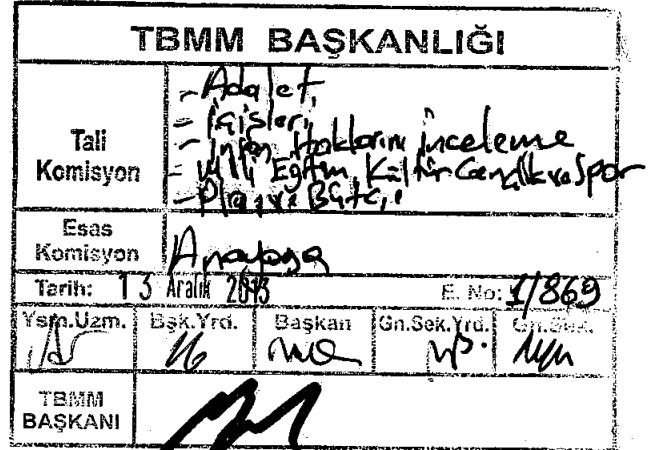 TBMM BAŞKANLIĞI
Tali Komisyon
- Adalet,
- İçişleri,
- İnsan Haklarını İnceleme
- Milli Eğitim, Kültür Gençlik ve Spor
- Plan ve Bütçe
Esas Komisyon
Anayasa
Tarih: 13 Aralık 2013 E. No: 1/869
Ysm.Uzm. Bşk.Yrd. Başkan Gn.Sek.Yrd. Gn.Sek.
TBMM BAŞKANI